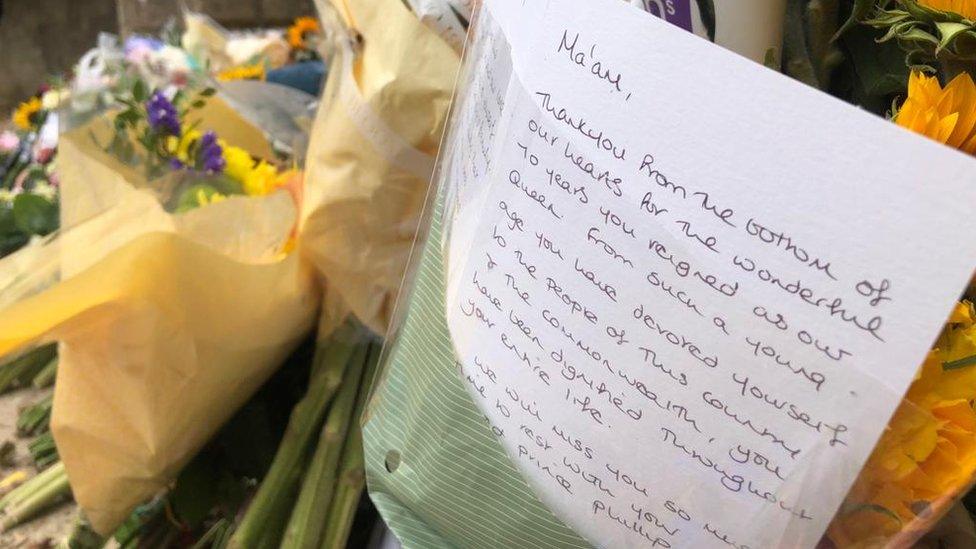 Ma'am,
Thankyou from the bothom of
our hearts for the wonderful
70 years you reigned as our
Queen. From such a young
age you have devoted yourself
to the people of this country
& the commonwealth, you
have been dignified throughout
your entire life.
We will miss you so
time to rest with your
prince Phillip